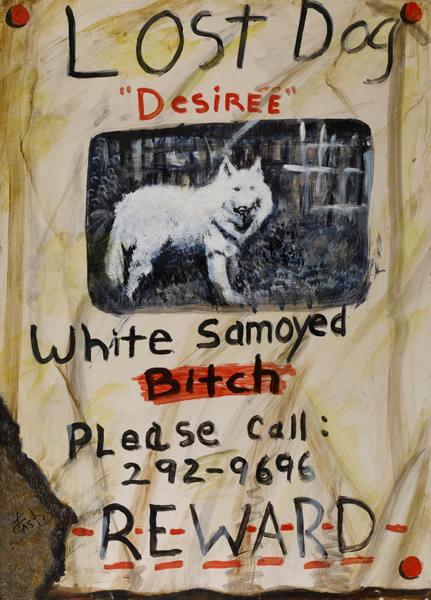 Lost Dog
"DesiREE"
White Samoyed
Bitch
PLease Call:
292-9696
-R-E-W-A-R-D-